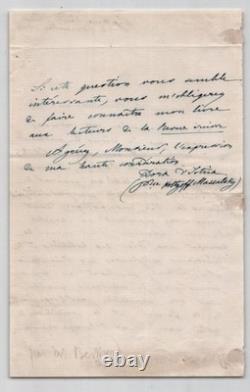 Si cette question vous semble
intéressante, vous m'obligerez
de faire connaître mon livre
aux lecteurs de la
Agréez, Monsieur, l'expression
de ma haute considération
Dora d'Istria
Massalsky)
par M.